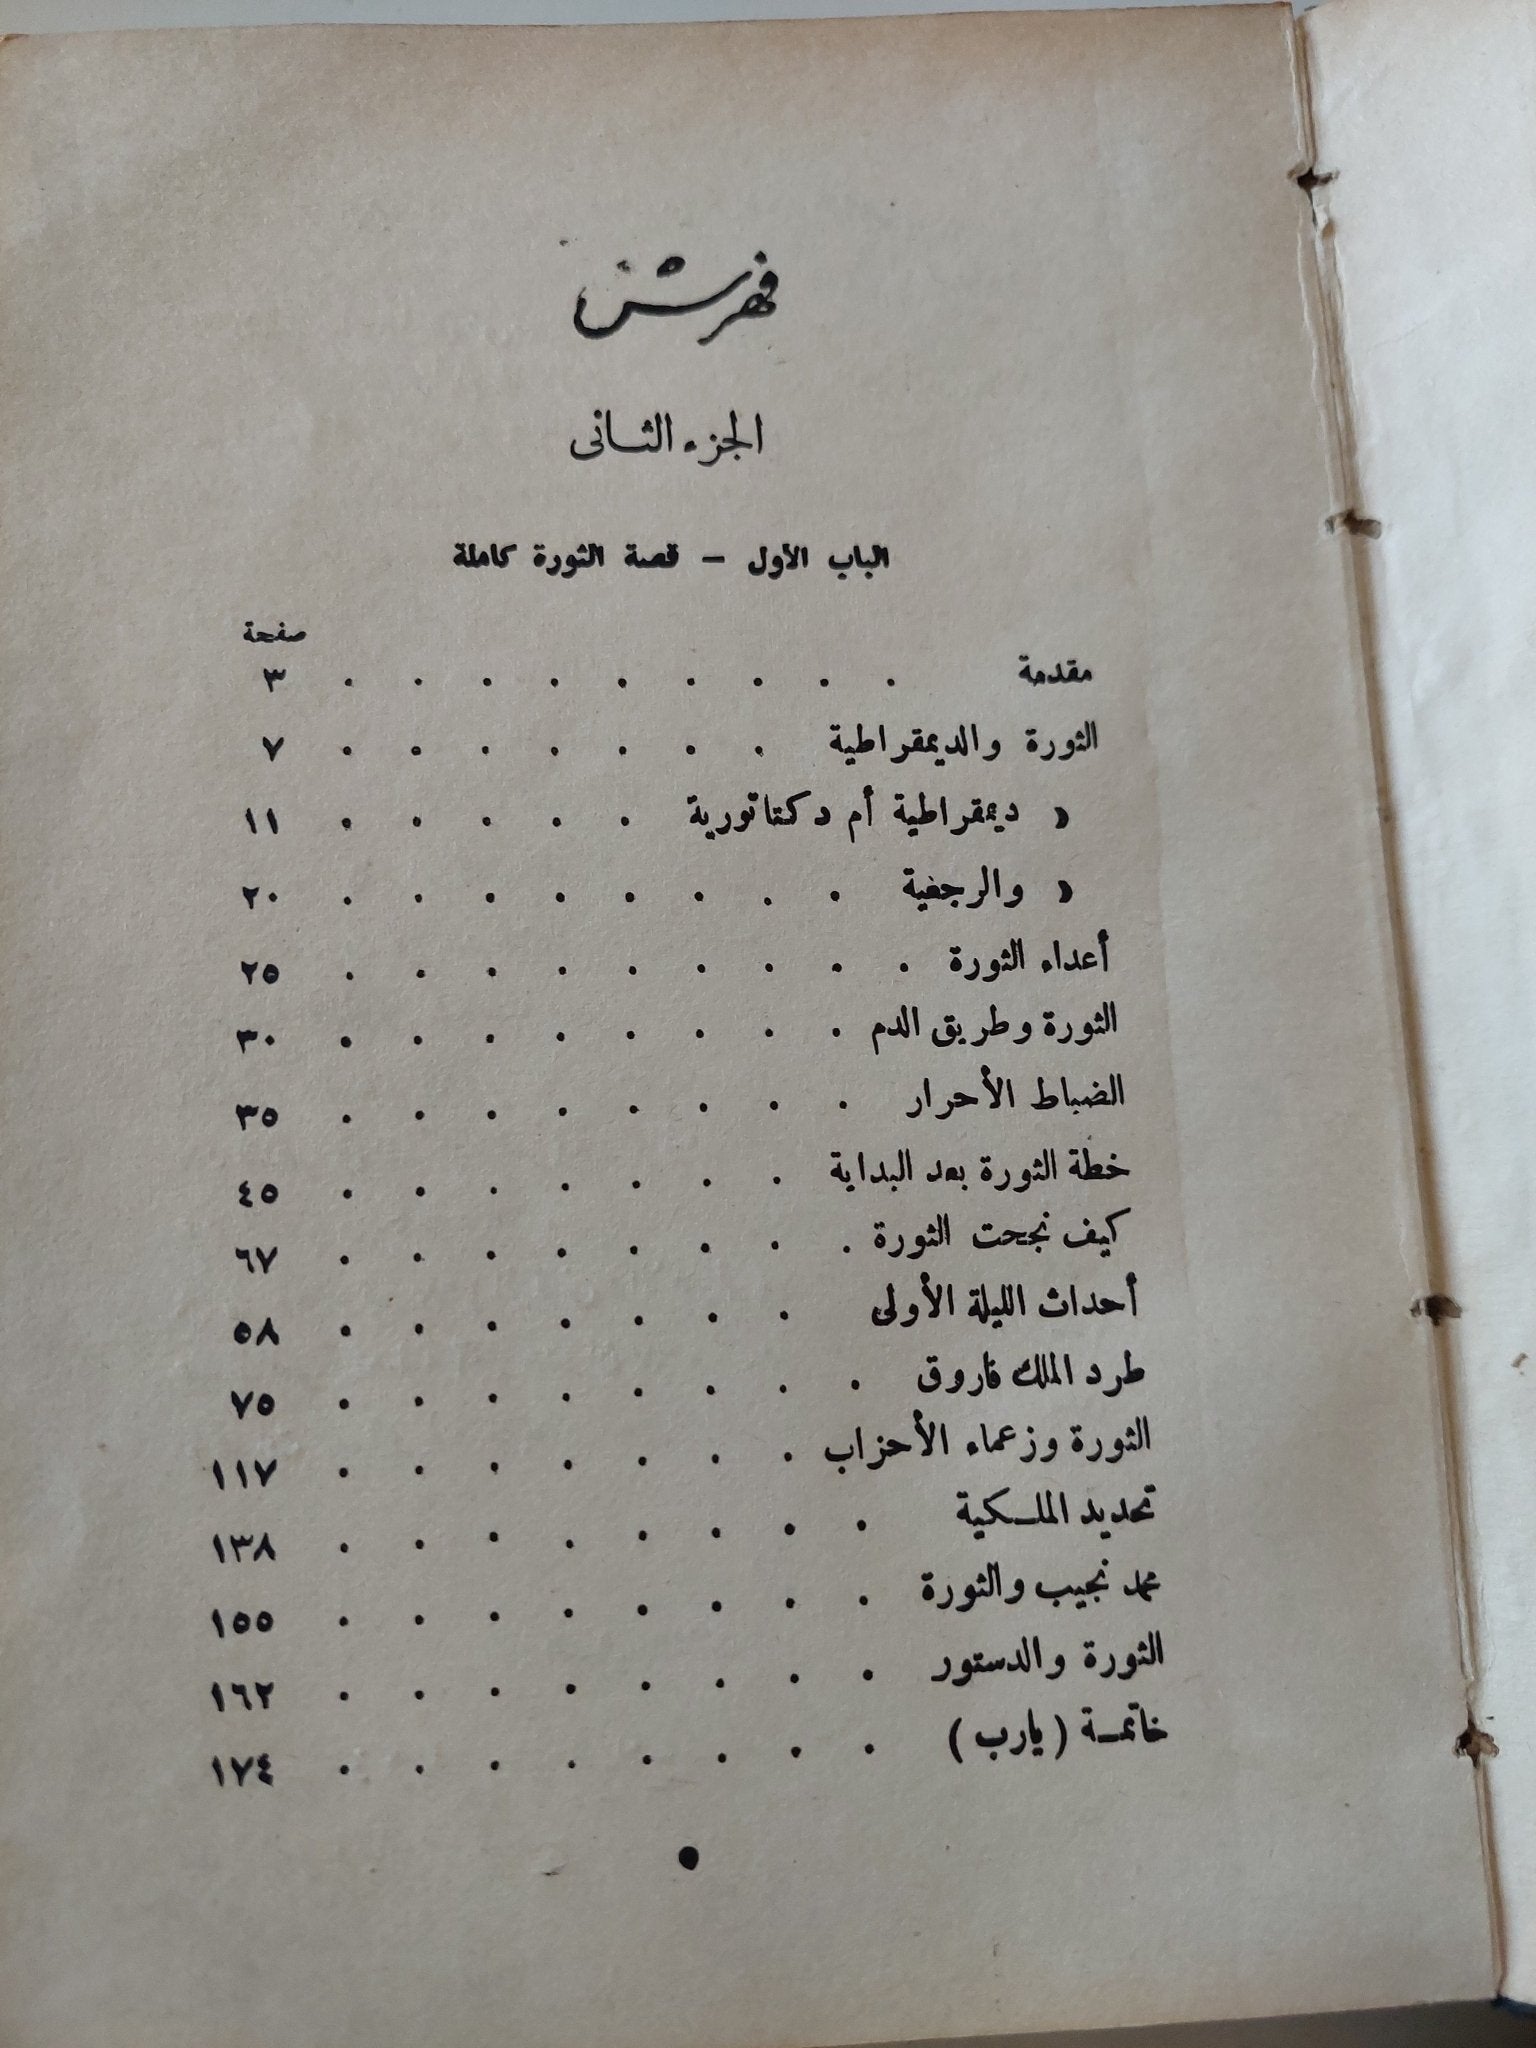 فهرس
الجزء الثـانى
الباب الأول – قصة الثورة كاملة
صفحة
مقدمة . . . . . . . . . ٣
الثورة والديمقراطية . . . . . . . ٧
» ديمقراطية أم دكتاتورية . . . . . ١١
» والرجعية . . . . . . . . ٢٠
أعداء الثورة . . . . . . . . . ٢٥
الثورة وطريق الدم . . . . . . . . ٣٠
الضباط الأحرار . . . . . . . . ٣٥
خطة الثورة بعد البداية . . . . . . . ٤٥
كيف نجحت الثورة . . . . . . . . ٦٧
أحداث الليلة الأولى . . . . . . . ٥٨
طرد الملك فاروق . . . . . . . . ٧٥
الثورة وزعماء الأحزاب . . . . . . . ١١٧
تحديد الملـكية . . . . . . . . ١٣٨
محمد نجيب والثورة . . . . . . . . ١٥٥
الثورة والدستور . . . . . . . . ١٦٢
خاتمـة ( يارب ) . . . . . . . . ١٧٤